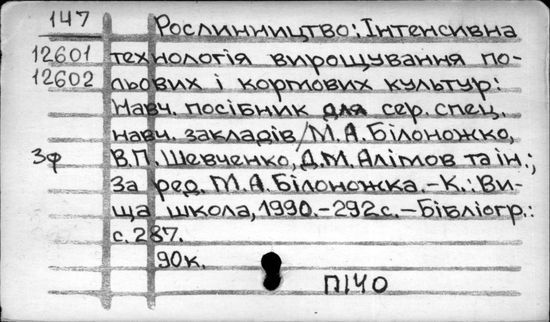 147 Рослинництво: Інтенсивна
12601 технологія вирощування по-
12602 льових і кормових культур:
Навч. посібник для сер. спец.
навч. закладів/М.А.Білоножко,
3ф В.П.Шевченко, Д.М.Алімов та ін.;
За ред. М.А.Білоножка.-К.: Ви-
ща школа, 1990.-292с.-Бібліогр.:
с.287.
90к.
П140